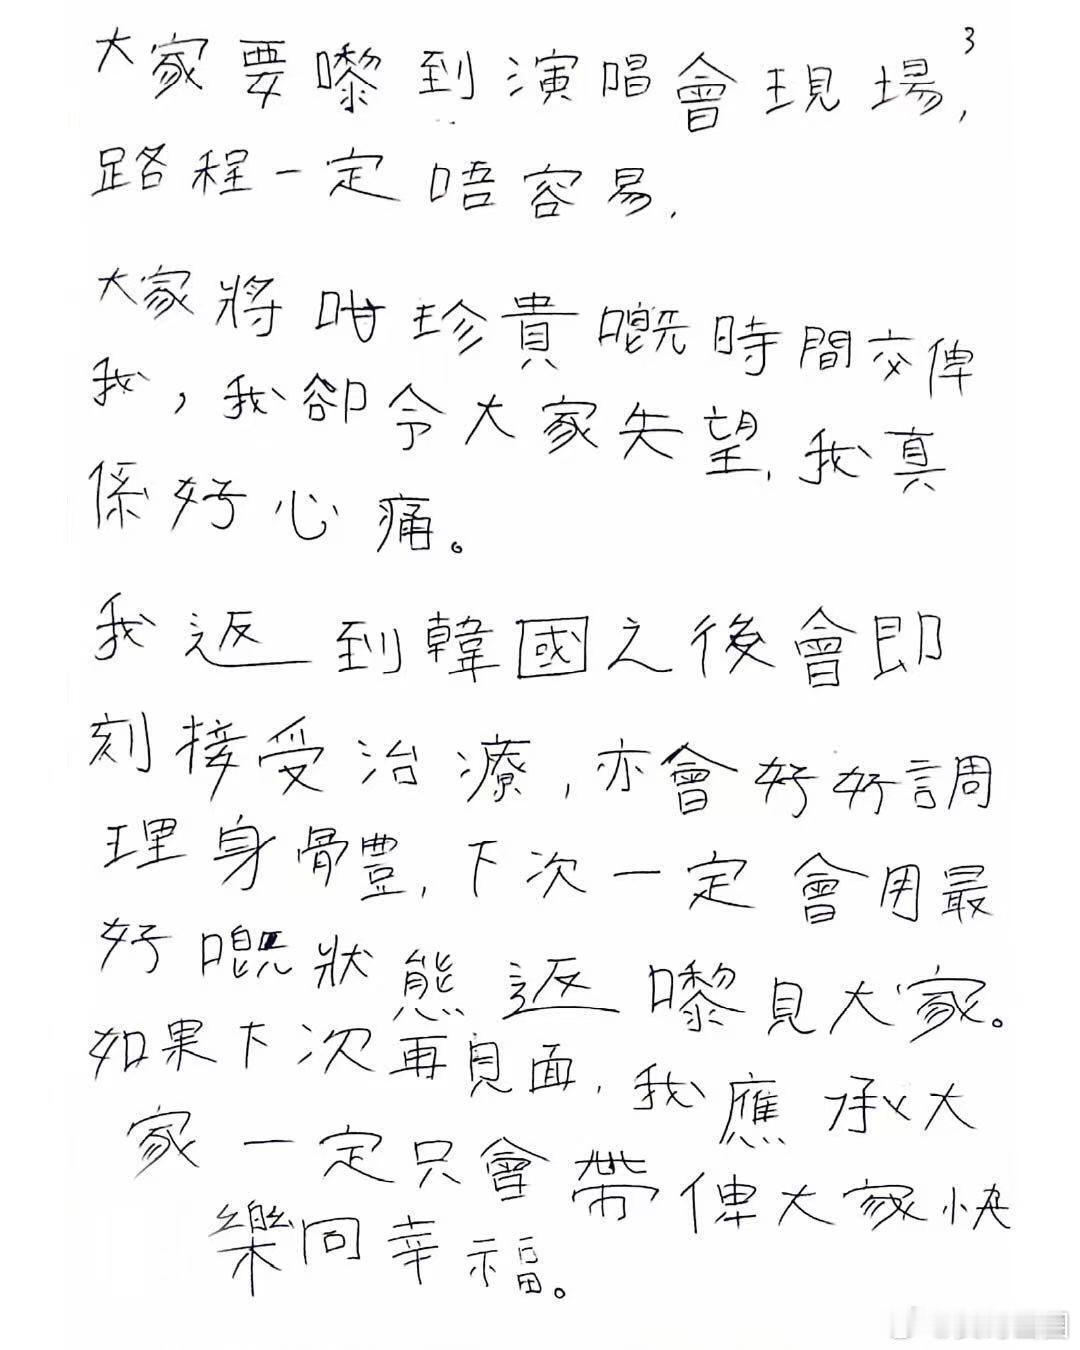 3
大家要嚟到演唱會現場,
路程一定唔容易.
大家將咁珍貴嘅時間交俾
我,我卻令大家失望,我真
係好心痛。
我返到韓國之後會即
刻接受治療,亦會好好調
理身骨豊,下次一定會用最
好嘅狀態返嚟見大家。
如果下次再見面,我應承大
家一定只會帶俾大家快
樂同幸福。